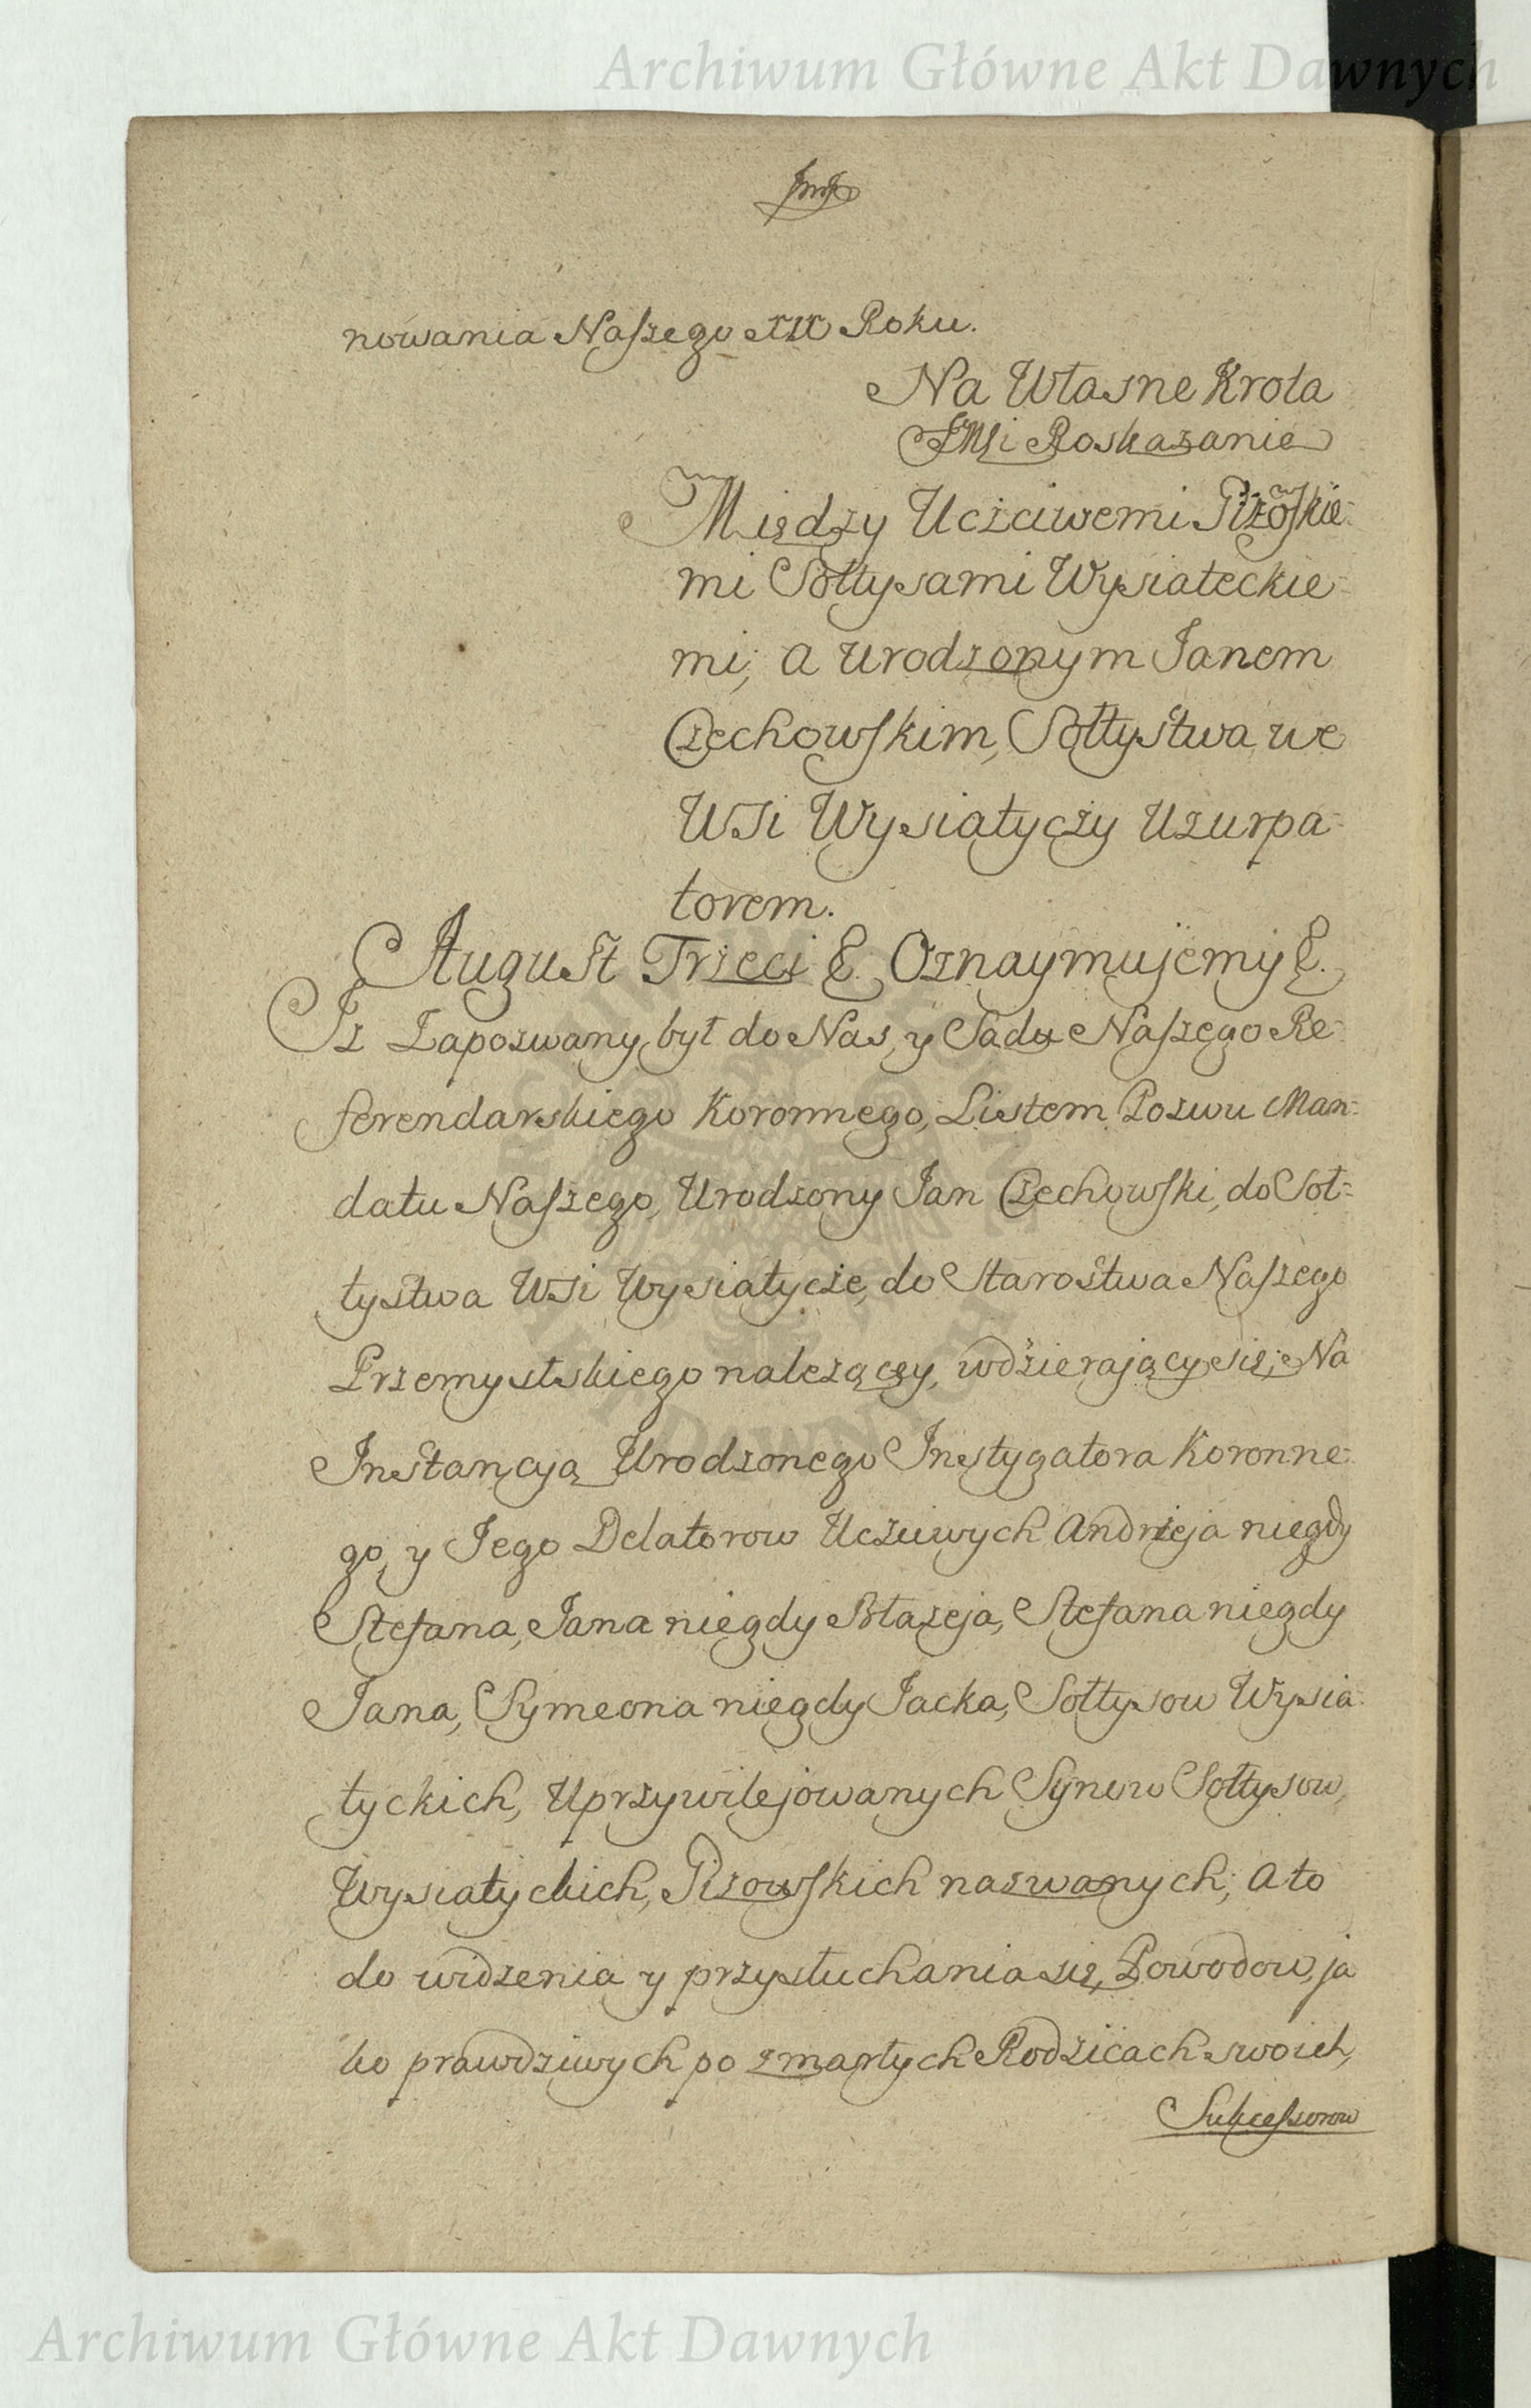 Archiwum Główne Akt Dawnych
nowania Naszego XIX Roku.
Na Własne Krola
JMSi Roskazanie
Między Uczciwemi Pizowskie-
mi Sołtysami Wysiateckie-
mi, a Urodzonym Janem
Czechowskim, Sołtystwa we
WSi Wysiatyczy Uzurpa-
torem.
August Trzeci &. Oznaymujemy &.
Iz Zapozwany był do Nas, y Sądu Naszego Re-
ferendarskiego Koronnego, Listem Pozwu Man-
datu Naszego, Urodzony Jan Czechowski, do Soł-
tystwa WSi Wysiatycze, do Starostwa Naszego
Przemyslskiego nalezączy, wdzierający się; Na
Instancyą Urodzonego Instygatora Koronne-
go, y Jego Delatorow Uczciwych Andrzeja niegdy
Stefana, Jana niegdy Błazeja, Stefana niegdy
Jana, Symeona niegdy Jacka, Sołtysow Wysia-
tyckich, Uprzywilejowanych Synow Sołtysow,
Wysiatyckich, Pizowskich nazwanych; a to
do widzenia y przysłuchania się, Powodow, ja
ko prawdziwych po zmarłych Rodzicach swoich,
Sukcessorow
Archiwum Główne Akt Dawnych